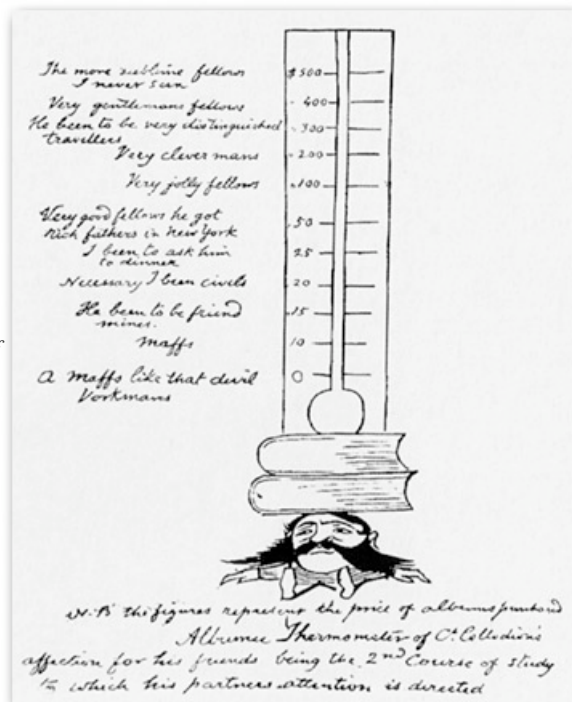 The more sublime fellows
I never seen
$500
Very gentlemans fellows
400
He been to be very distinguished
travellers
300
Very clever mans
200
Very jolly fellows
100
Very good fellows he got
rich fathers in New York
50
I been to ask him
to dinner
25
Necessary I been civels
20
He been to be friend
mines.
15
Maffs
10
A Maffs like that devil
Vorkmans
0
N.B. the figures represent the price of albums purchased
Albumee Thermometer of Ct. Collodion's
affection for his friends being the 2nd Course of study
to which his partners attention is directed